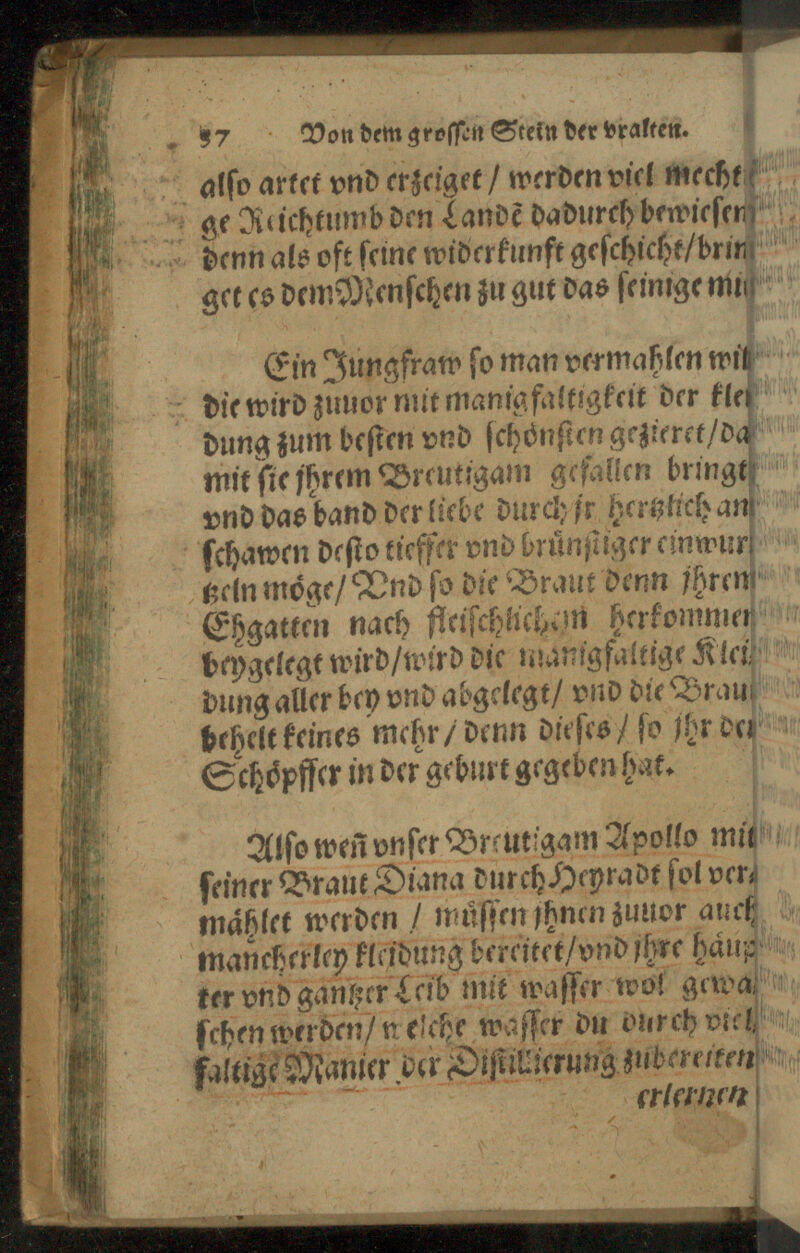 87 Von dem groſſen Stein der vralten.
alſo artet vnd erzeiget / werden viel mecht
ge Reichtumb den Landẽ dadurch bewieſen
denn als oft ſeine widerkunft geſchicht/brin
get es dem Menſchen zu gut das ſeinige mit
Ein Jungfraw ſo man vermahlen wil
die wird zuuor mit manigfaltigkeit der klei
dung zum beſten vnd ſchoͤnſten gezieret/da
mit ſie jhrem Breutigam gefallen bringt
vnd das band der liebe durch jr hertzlich an
ſchawen deſto tieffer vnd bruͤnſtiger einwur
tzeln moͤge/ Vnd ſo die Braut denn jhrem
Ehgatten nach fleiſchlichem herkommen
beygelegt wird/wird die manigfaltige Klei
dung aller bey vnd abgelegt/ vnd die Brau
behelt keines mehr / denn dieſes / ſo jhr der
Schoͤpffer in der geburt gegeben hat.
Alſo weñ vnſer Breutigam Apollo mit
ſeiner Braut Diana durch Heyradt ſol ver⸗
maͤhlet werden / muͤſſen jhnen zuuor auch
mancherley kleidung bereitet/vnd jhre haͤup
ter vnd gantzer Leib mit waſſer wol gewa
ſchen werden/ welche waſſer du durch viel
faltige Manier der Diſtillierung zubereiten
erlernen